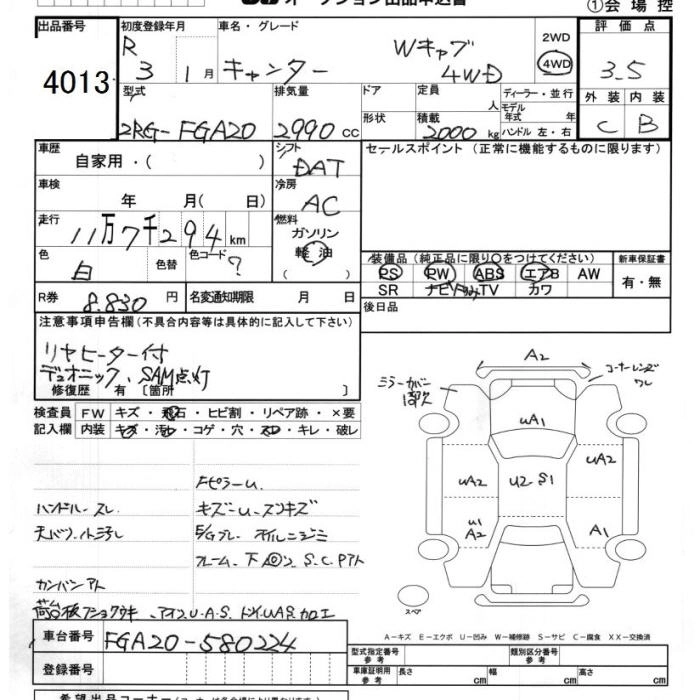 オークション出品申込書
①会場控
出品番号 初度登録年月 車名・グレード 評価点
4013 R 3 1月 キャンター Wキャブ 4WD 2WD 4WD 3.5
外装 内装
C B
型式 排気量 ドア 定員 人 ディーラー・並行
2RG-FGA20 2990cc 形状 積載 2000kg モデル年式 年式 ハンドル 左・右
車歴 自家用・( ) シフト DAT
セールスポイント(正常に機能するものに限ります)
車検 年 月(日) 冷房 AC
走行 11万7千294km 燃料 ガソリン 軽油 ( )
色 白 色替 色コード ?
装備品(純正品に限り○をつけてください) 新車保証書
PS PW ABS エアB AW 有・無
SR ナビ TV カワ
R券 8.830円 名変通知期限 月 日
後日品
注意事項申告欄(不具合内容等は具体的に記入して下さい)
リヤヒーター付
デュオニック、SAM点灯
修復歴 有〔箇所 〕
検査員 FW キズ・飛石・ヒビ割・リペア跡・×要
記入欄 内装 キズ・汚れ・コゲ・穴・スレ・キレ・破レ
A2
ミラーカバー
コーナーレンズ
ワレ
uA1
uA2
uA2
U2 S1
u1
A2
A1
スペア
Fピラーu
ハンドルスレ キズ
フレーム下
カンバンアト
車台番号 FGA20-580224
登録番号
A-キズ E-エクボ U-凹み W-補修跡 S-サビ C-腐食 XX-交換済
型式指定番号 参考 類別区分番号 参考
車庫証明用 参考 長さ cm 幅 cm 高さ cm
希望出品コーナー